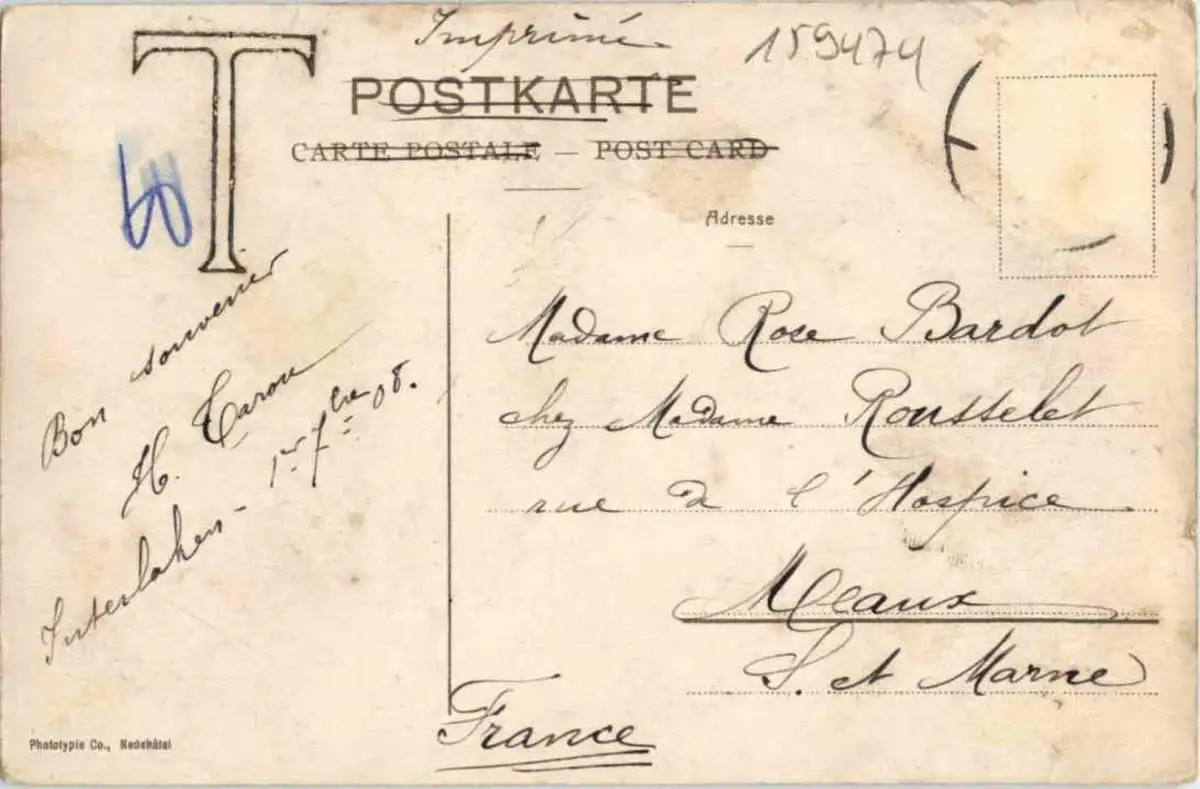 Imprimé
159474
T
POSTKARTE
CARTE POSTALE — POST CARD
Adresse
Bon souvenir
H. Caron
Interlaken - 1er 7bre 08.
Madame Rose Bardot
chez Madame Rousselet
rue de l'Hospice
Meaux
S. et Marne
France
Phototypie Co., Neuchâtel